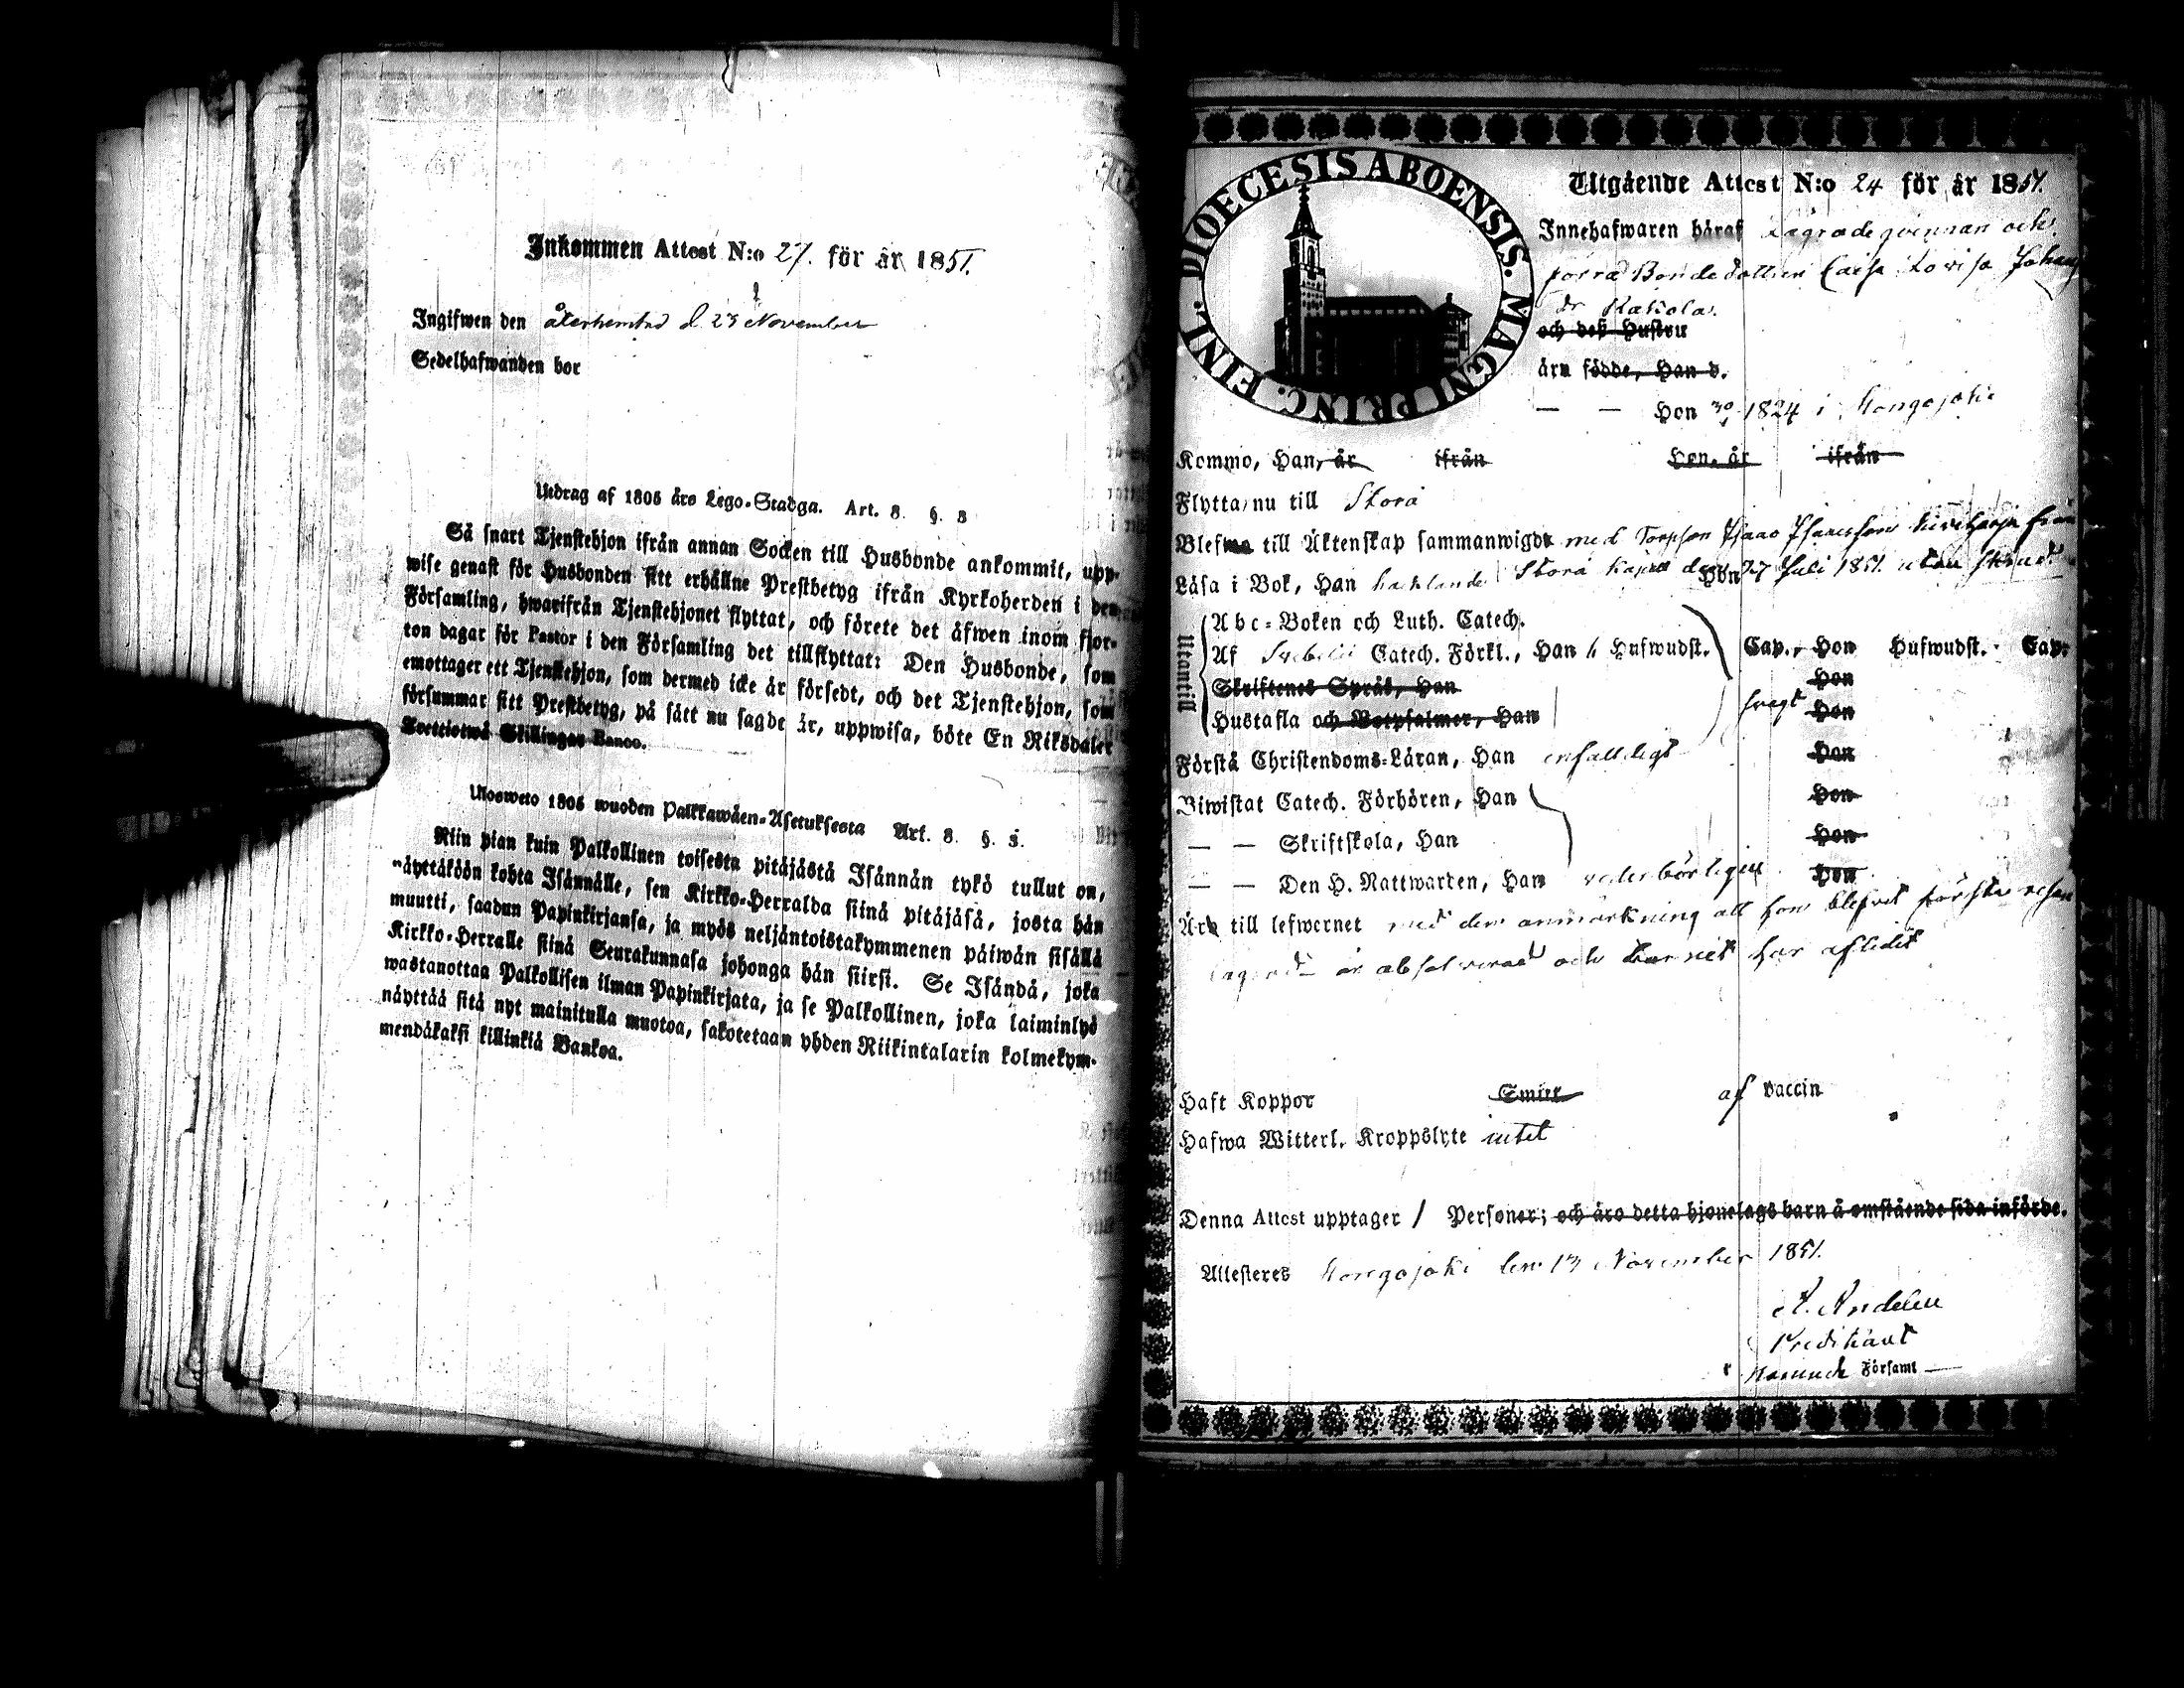 Inkommen Attest N:o 27. för år 1851.
Ingifwen den återhemtad d. 23 November
Sedelhafwanden bor
Utdrag af 1805 års Lego-Stadga. Art. 8. §. 3
Så snart Tjenstehjon ifrån annan Socken till Husbonde ankommit, upp-
wise genast för Husbonden sitt erhållne Prestbetyg ifrån Kyrkoherden i den
Församling, hwarifrån Tjenstehjonet flyttat, och förete det äfwen inom fjor-
ton dagar för Pastor i den Församling det tillflyttat: Den Husbonde, som
emottager ett Tjenstehjon, som dermed icke är försedt, och det Tjenstehjon, som
försummar sitt Prestbetyg, på sätt nu sagdt är, uppwisa, böte En Riksdaler
Trettiotwå Skillingar Banco.
Ulosweto 1805 wuoden Palkkawäen-Asetuksesta Art. 8. §. 3.
Niin pian kuin Palkollinen toisesta pitäjästä Isännän tykö tullut on,
näyttäköön kohta Isännälle, sen Kirkko-Herralda siinä pitäjäsä, josta hän
muutti, saadun Papinkirjansa, ja myös neljäntoistakymmenen päiwän sisällä
Kirkko-Herralle siinä Seurakunnasa johonga hän siirsi. Se Isändä, joka
wastanottaa Palkollisen ilman Papinkirjata, ja se Palkollinen, joka laiminlyö
näyttää sitä nyt mainitulla muotoa, sakotetaan yhden Riikintalarin kolmekym-
mendäkaksi killinkiä Bankoa.
DIOECESIS ABOENSIS. MAGNI PRINC. FINL.
Utgående Attest N:o 24 för år 1851.
Innehafwaren häraf Lägradeqvinnan och
förra Bondedottren Caisa Lovisa Johans
dr Kakola.
och deß Hustru
äru födde, Han d.
— — Hon 30 1824 i Hongojoki
Kommo, Han, år ifrån Hon, år ifrån
Flytta nu till Storå
Blefwo till Äktenskap sammanwigde med Torpson Isaac Isaacsson från
Läsa i Bok, Han hacklande Storå Hon 27 Juli 1851. utan
Utantill
Abc-Boken och Luth. Catech.
Af Svebelii Catech. Förkl., Han 4 Hufwudst. Cap., Hon Hufwudst. Cap:
Skriftenes Språk, Han Hon
Hustafla och Botpsalmer, Han svagt Hon
Förstå Christendoms-Läran, Han enfalldigt Hon
Biwistat Catech. Förhören, Han Hon
— — Skriftskola, Han Hon
— — Den H. Nattwarden, Han vederbörligen Hon
Är till lefwernet med den anmärkning att hon blifvit första resan
lägrad är absolverad och barnet har aflidit
Haft Koppor Smitt af Vaccin
Hafwa Witterl. Kroppslyte intet
Denna Attest upptager 1 Personer; och äro detta hjonelags barn å omstående sida införde.
Attesteres Hongojoki den 13 November 1851.
A. Andelin
Predikant
Församl